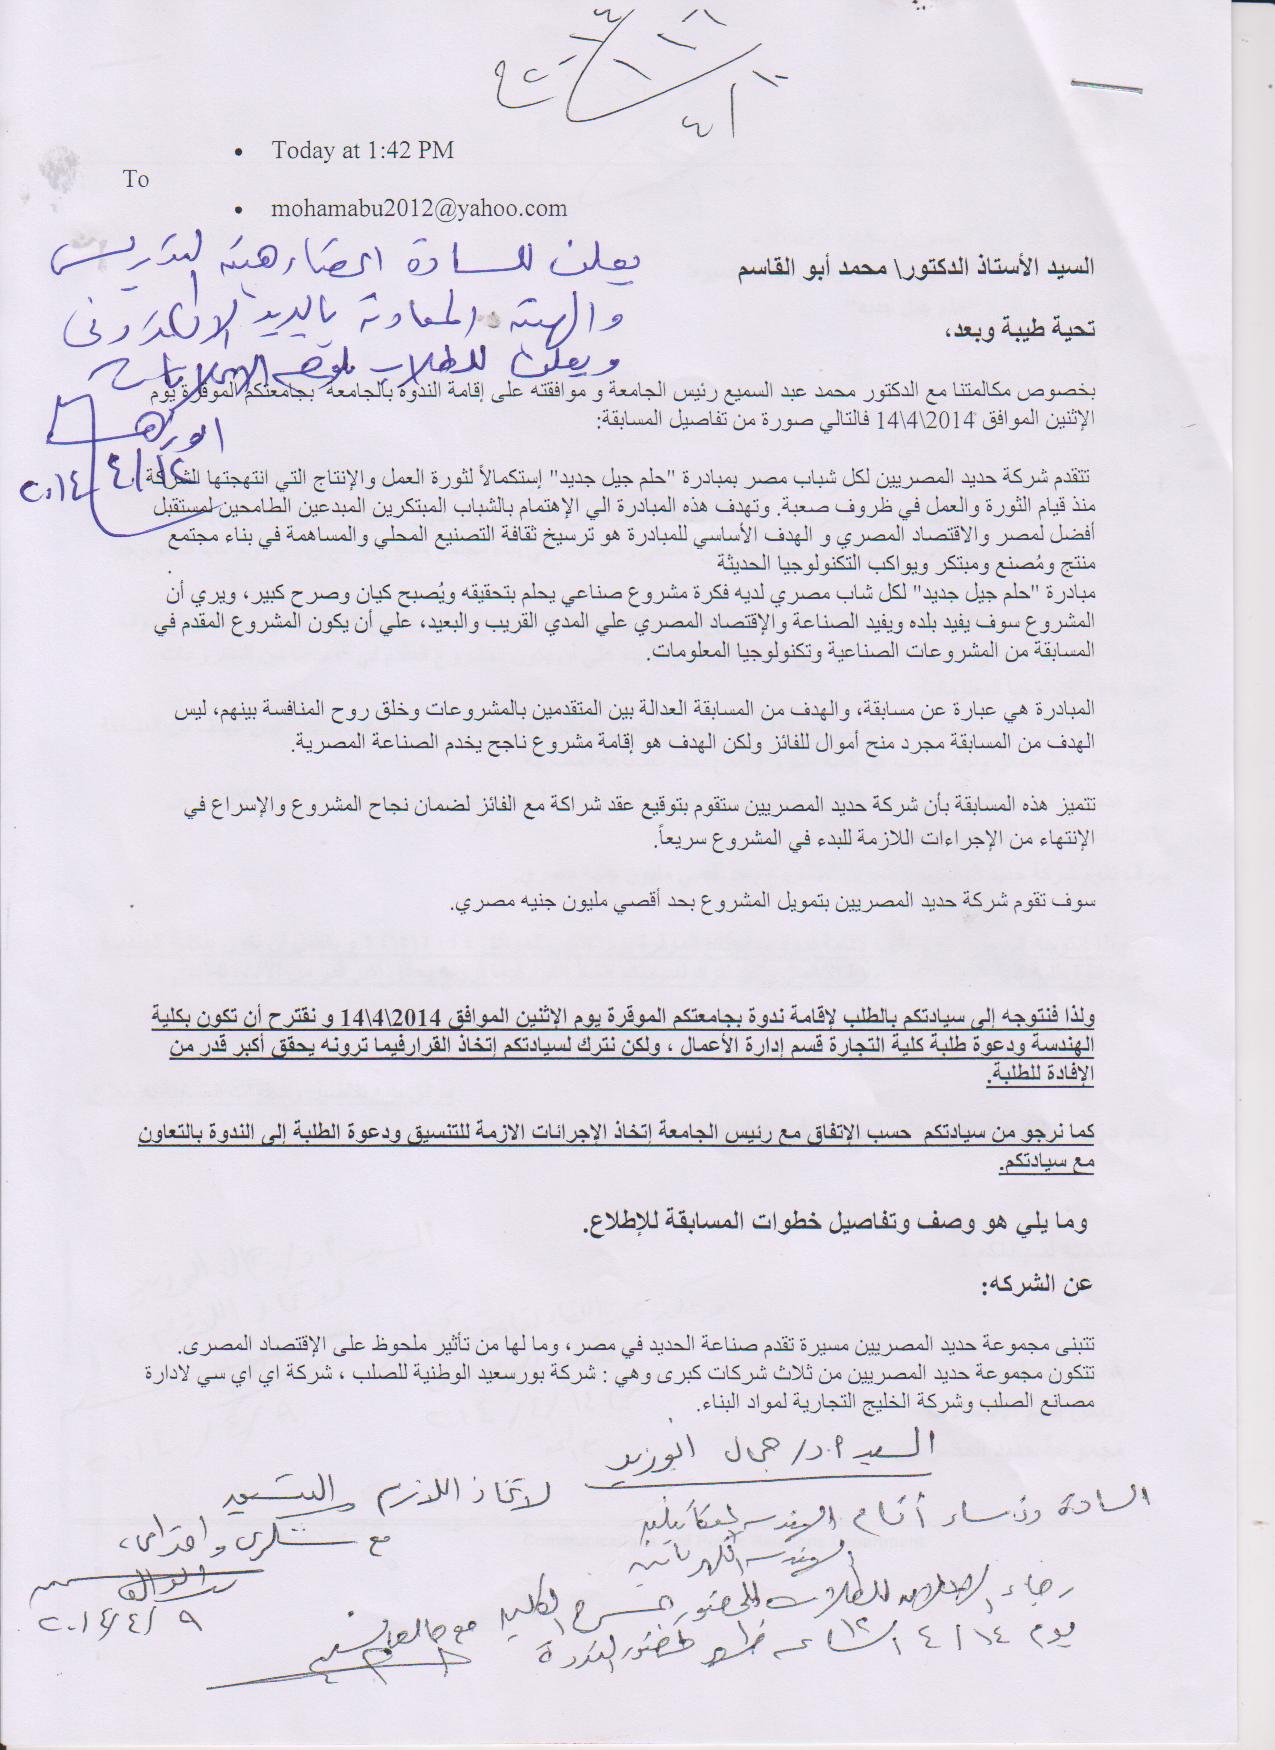 Today at 1:42 PM
To
mohamabu2012@yahoo.com
يعلن للسادة اعضاء هيئة التدريس
والهيئة المعاونة بالبريد الالكترونى
ويعلن للطلاب
٢٠١٤/٤/١٢
السيد الأستاذ الدكتور\ محمد أبو القاسم
تحية طيبة وبعد،
بخصوص مكالمتنا مع الدكتور محمد عبد السميع رئيس الجامعة و موافقته على إقامة الندوة بالجامعة بجامعتكم الموقرة يوم
الإثنين الموافق 2014\4\14 فالتالي صورة من تفاصيل المسابقة:
تتقدم شركة حديد المصريين لكل شباب مصر بمبادرة "حلم جيل جديد" إستكمالاً لثورة العمل والإنتاج التي انتهجتها الشركة
منذ قيام الثورة والعمل في ظروف صعبة. وتهدف هذه المبادرة الي الإهتمام بالشباب المبتكرين المبدعين الطامحين لمستقبل
أفضل لمصر والاقتصاد المصري و الهدف الأساسي للمبادرة هو ترسيخ ثقافة التصنيع المحلي والمساهمة في بناء مجتمع
منتج ومُصنع ومبتكر ويواكب التكنولوجيا الحديثة
.
مبادرة "حلم جيل جديد" لكل شاب مصري لديه فكرة مشروع صناعي يحلم بتحقيقه ويُصبح كيان وصرح كبير، ويري أن
المشروع سوف يفيد بلده ويفيد الصناعة والإقتصاد المصري علي المدي القريب والبعيد، علي أن يكون المشروع المقدم في
المسابقة من المشروعات الصناعية وتكنولوجيا المعلومات.
المبادرة هي عبارة عن مسابقة، والهدف من المسابقة العدالة بين المتقدمين بالمشروعات وخلق روح المنافسة بينهم، ليس
الهدف من المسابقة مجرد منح أموال للفائز ولكن الهدف هو إقامة مشروع ناجح يخدم الصناعة المصرية.
تتميز هذه المسابقة بأن شركة حديد المصريين ستقوم بتوقيع عقد شراكة مع الفائز لضمان نجاح المشروع والإسراع في
الإنتهاء من الإجراءات اللازمة للبدء في المشروع سريعاً.
سوف تقوم شركة حديد المصريين بتمويل المشروع بحد أقصي مليون جنيه مصري.
ولذا فنتوجه إلى سيادتكم بالطلب لإقامة ندوة بجامعتكم الموقرة يوم الإثنين الموافق 2014\4\14 و نقترح أن تكون بكلية
الهندسة ودعوة طلبة كلية التجارة قسم إدارة الأعمال ، ولكن نترك لسيادتكم إتخاذ القرارفيما ترونه يحقق أكبر قدر من
الإفادة للطلبة.
كما نرجو من سيادتكم حسب الإتفاق مع رئيس الجامعة إتخاذ الإجرائات الازمة للتنسيق ودعوة الطلبة إلى الندوة بالتعاون
مع سيادتكم.
وما يلي هو وصف وتفاصيل خطوات المسابقة للإطلاع.
عن الشركه:
تتبنى مجموعة حديد المصريين مسيرة تقدم صناعة الحديد في مصر، وما لها من تأثير ملحوظ على الإقتصاد المصرى.
تتكون مجموعة حديد المصريين من ثلاث شركات كبرى وهي : شركة بورسعيد الوطنية للصلب ، شركة اي اي سي لادارة
مصانع الصلب وشركة الخليج التجارية لمواد البناء.
السيد أ.د/ جمال ابوزيد
لاتخاذ اللازم
مع شكرى واحترامى،
٢٠١٤/٤/٩
السادة رؤساء أقسام الهندسة الميكانيكية
الهندسة الكهربائية
رجاء للطلاب للحضور بمسرح الكلية
يوم ٤/١٤ الساعة ١٢ ظهرا لحضور الندوة